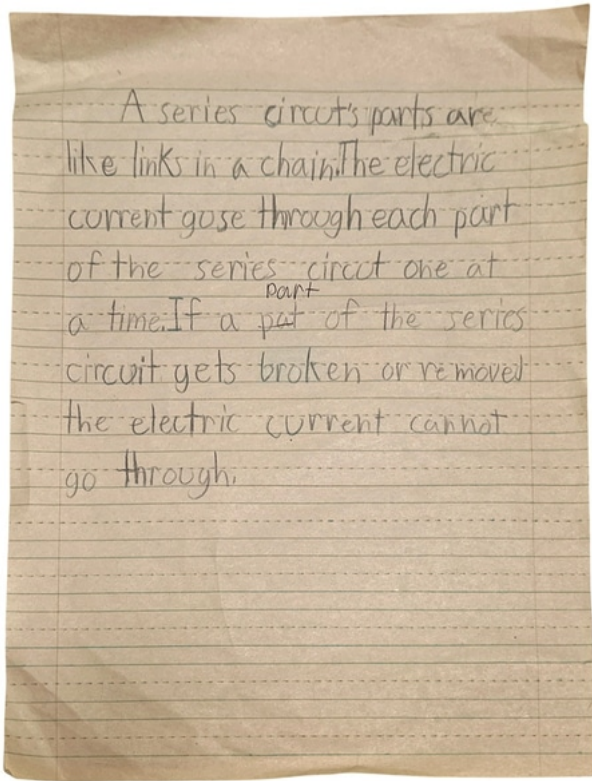 A series circut's parts are
like links in a chain. The electric
current gose through each part
of the series circut one at
part
a time. If a pat of the series
circuit gets broken or removed
the electric current cannot
go through.